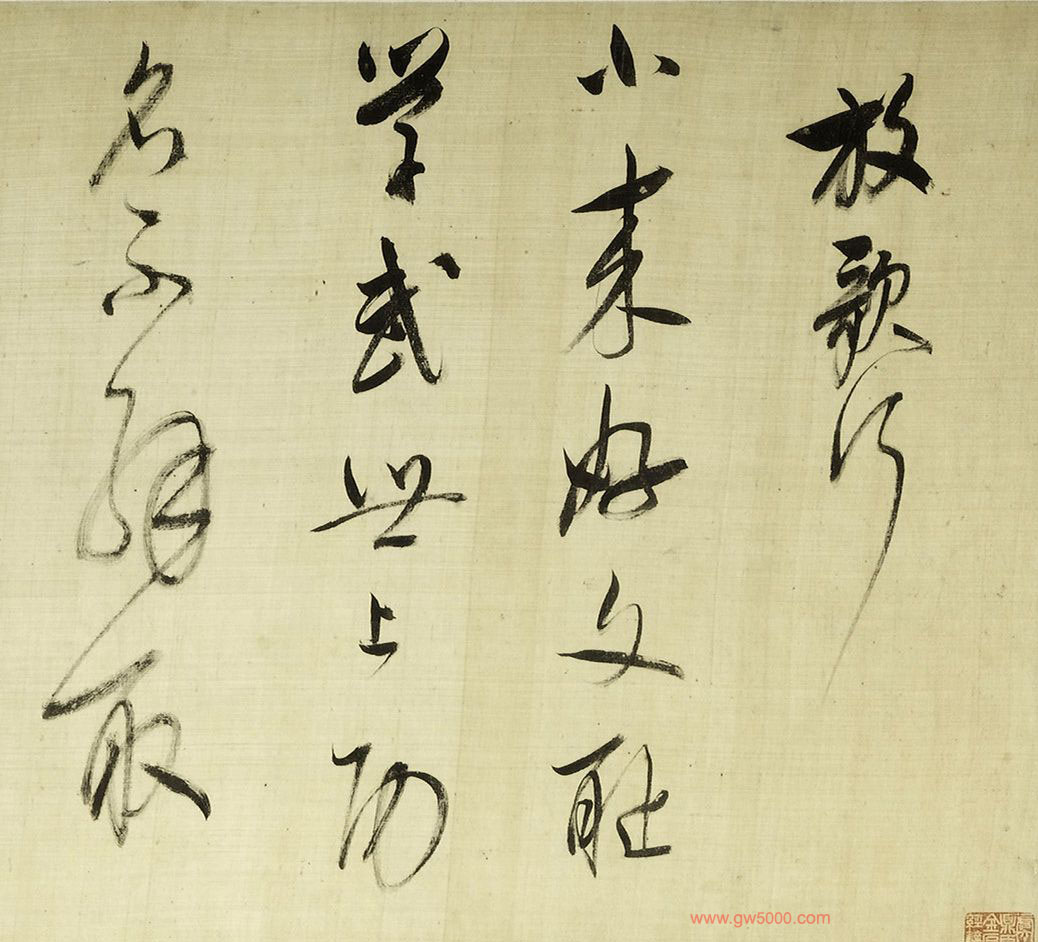 放歌行
小来好文耻
学武世上功
名不解取
www.gw5000.com